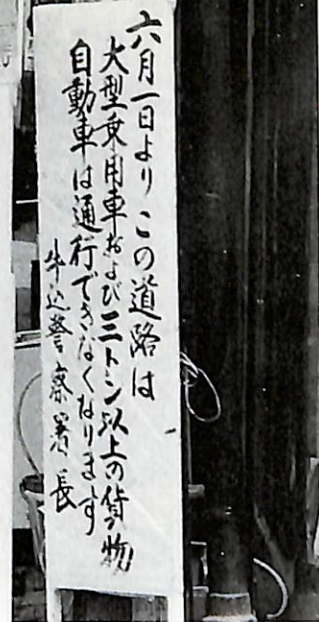 六月一日よりこの道路は
大型乗用車および三トン以上の貨物
自動車は通行できなくなります
牛込警察署長